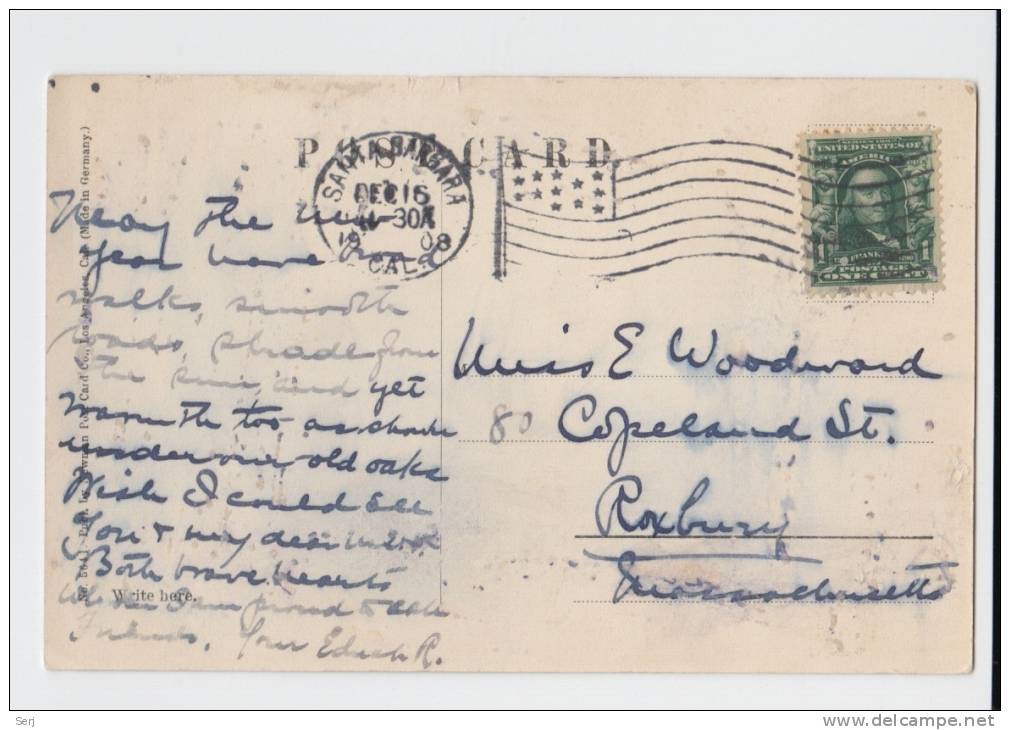 POST CARD
SANTA BARBARA
DEC 16
11-30A
1908
CAL.
UNITED STATES OF
AMERICA
FRANKLIN
POSTAGE
1 ONE CENT 1
May the new
Year have broad
walks, smooth
roads, shade from
the sun, and yet
warmth too as
under our old oaks
Wish I could see
You & my dear
Both brave hearts
I am proud to call
friends. Your Edith R.
Miss E Woodward
80 Copeland St.
Roxbury
Massachusetts
Write here.
Newman Post Card Co., Los Angeles, Cal. (Made in Germany.)
Serj
www.delcampe.net